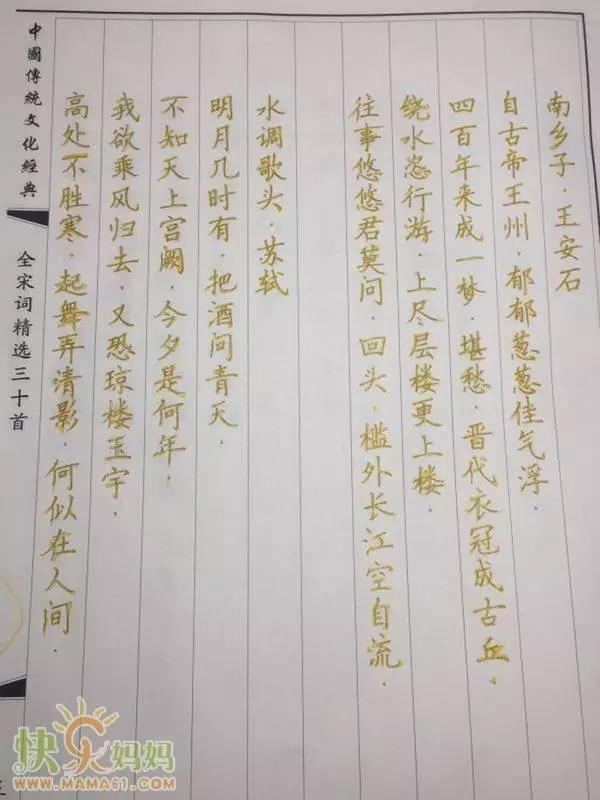 南乡子·王安石
自古帝王州·郁郁葱葱佳气浮·
四百年来成一梦·堪愁·晋代衣冠成古丘·
绕水恣行游·上尽层楼更上楼·
往事悠悠君莫问·回头·槛外长江空自流·
水调歌头·苏轼
明月几时有·把酒问青天·
不知天上宫阙·今夕是何年·
我欲乘风归去·又恐琼楼玉宇·
高处不胜寒·起舞弄清影·何似在人间·
中國傳統文化經典
全宋词精选三十首
快乐妈妈
WWW.MAMA61.COM